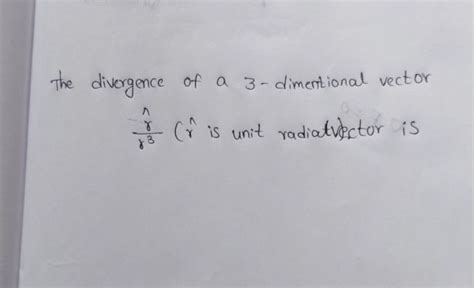 The divergence of a 3-dimentional vector
r̂/r³ (r̂ is unit radial vector is